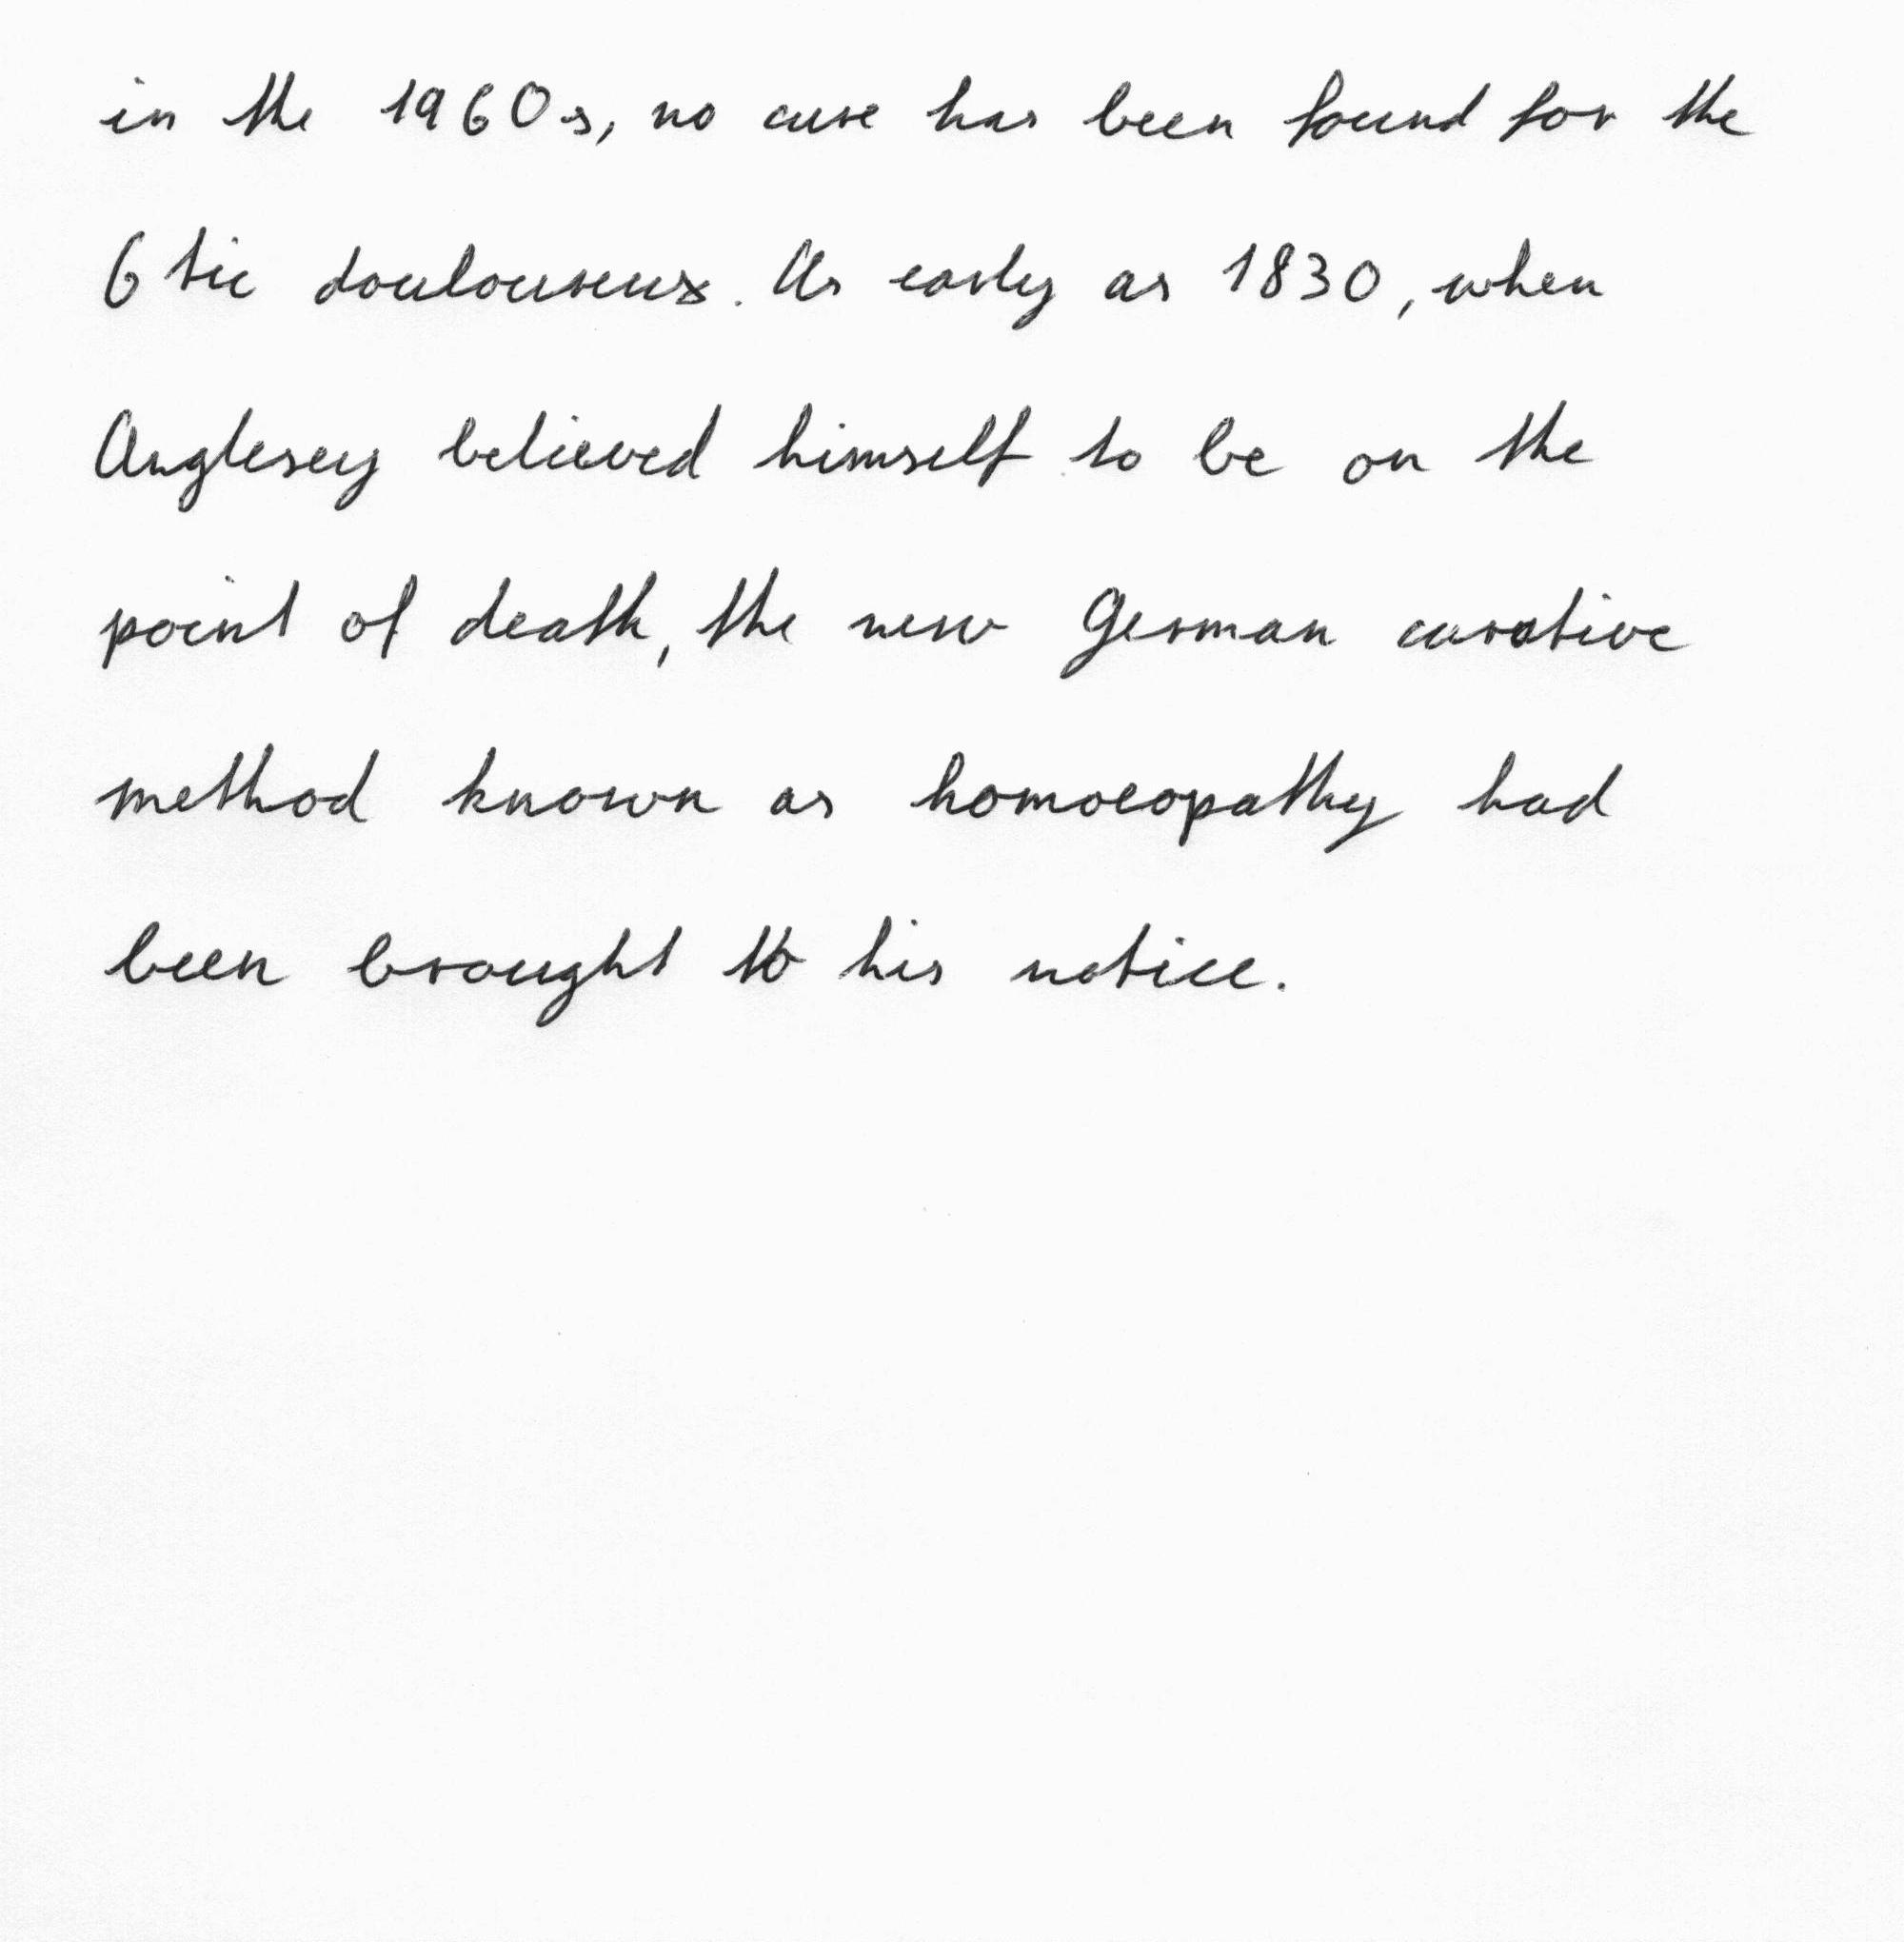 in the 1960s, no cure has been found for the
6 tic douloureux. As early as 1830, when
Anglesey believed himself to be on the
point of death, the new German curative
method known as homoeopathy had
been brought to his notice.